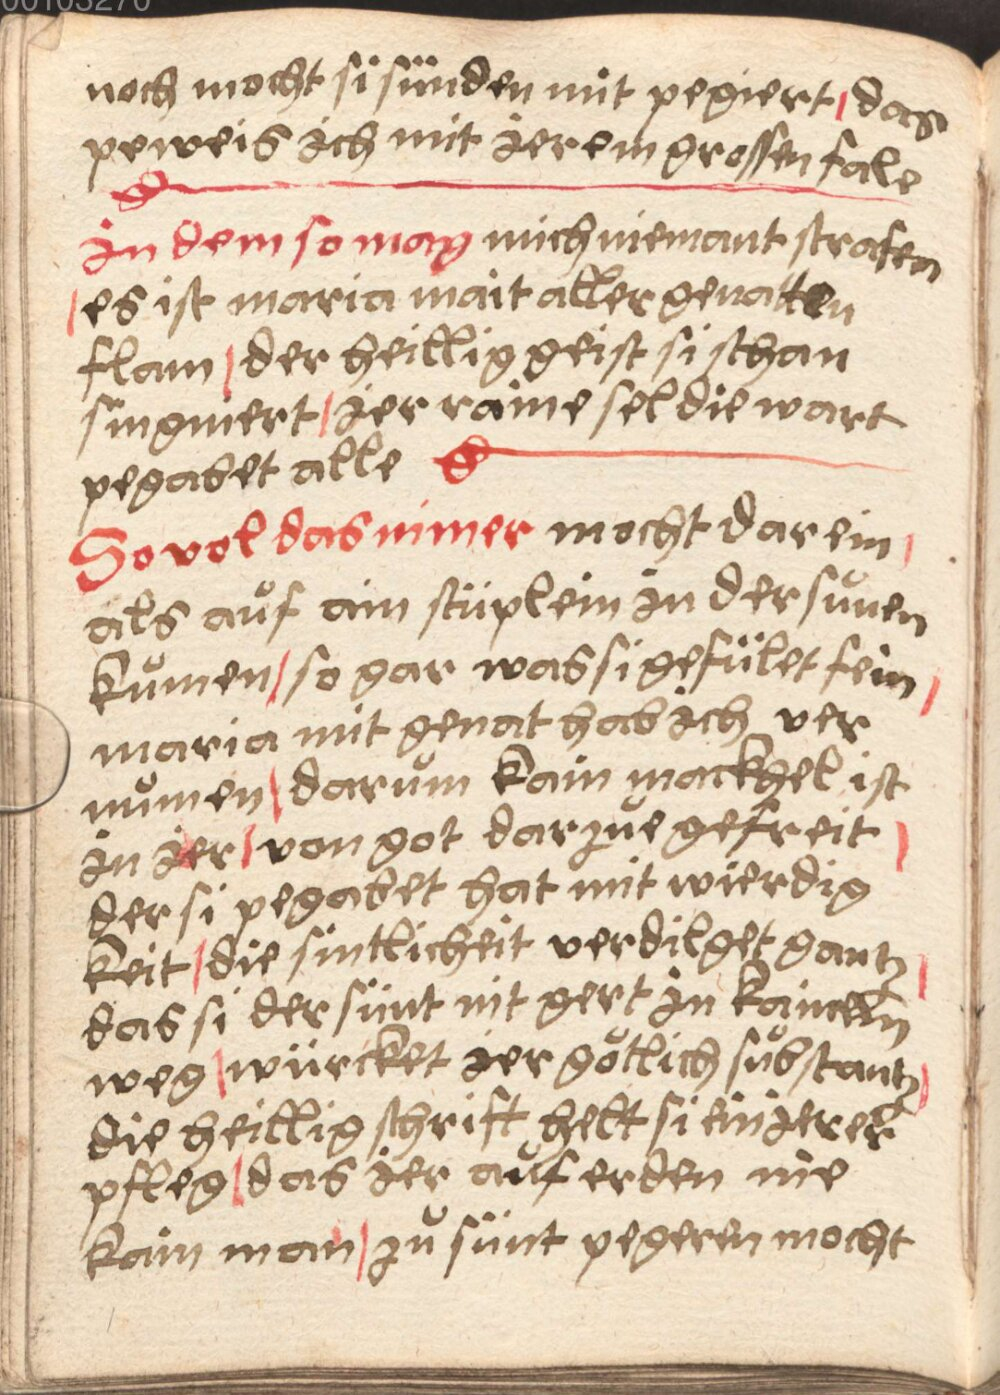 00103270
noch mocht si sünden mit pegiert / das
peweis ich mit ierem grossen fale
In dem so mag mich niemant strafen
/ es ist maria mait aller genaden
flam / der heillig geist si schan
singniert / ier raine sel die wart
pegabet alle
So vol das nimer mocht dar ein /
als auf ain stüplein in der sunen
kumen / so gar was si gefület fein /
maria mit genat hab ich ver
numen / darum kain mackhel ist
in ier / von got darzue gefreit /
der si pegabet hat mit wierdig
keit / die sintlicheit verdilget gantz /
das si der sünt nit gert in kainem
weg / würcket ier götlich substantz /
die heillig schrift helt si in irer
pfleg / das ier auf erden nie
kain man / zu sünt pegeren mocht